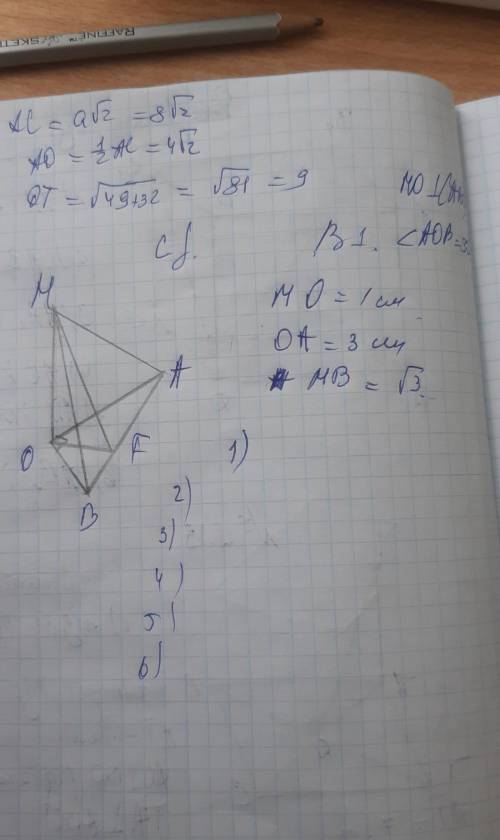 RAFFINE™
AC = a√2 = 8√2
AO = 1/2 AC = 4√2
OT = √49+32 = √81 = 9
MO ⊥ (A
B 1. <AOB =
MO = 1 см
OA = 3 см
MB = √3.
M
A
O
F
B
1)
2)
3)
4)
5)
6)